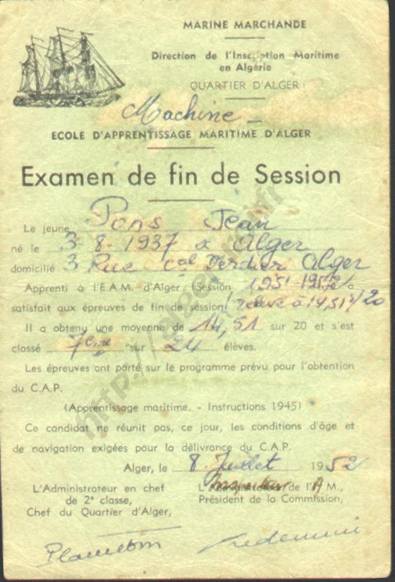 MARINE MARCHANDE
Direction de l'Inscription Maritime
en Algérie
QUARTIER D'ALGER
Machine
ECOLE D'APPRENTISSAGE MARITIME D'ALGER
Examen de fin de Session
Le jeune Pons Jean
né le 3-8-1937 à Alger
domicilié 3 Rue Col Alger
Apprenti à l'E.A.M. d'Alger (Session 1951-1952) a
satisfait aux épreuves de fin de session
Il a obtenu une moyenne de 14,51 sur 20 et s'est
classé 7ème sur 24 élèves.
Les épreuves ont porté sur le programme prévu pour l'obtention
du C.A.P.
(Apprentissage maritime. - Instructions 1945)
Ce candidat ne réunit pas, ce jour, les conditions d'âge et
de navigation exigées pour la délivrance du C.A.P.
Alger, le 8 Juillet 1952
L'Administrateur en chef
de 2e classe,
Chef du Quartier d'Alger,
de l'I.M.,
Président de la Commission,